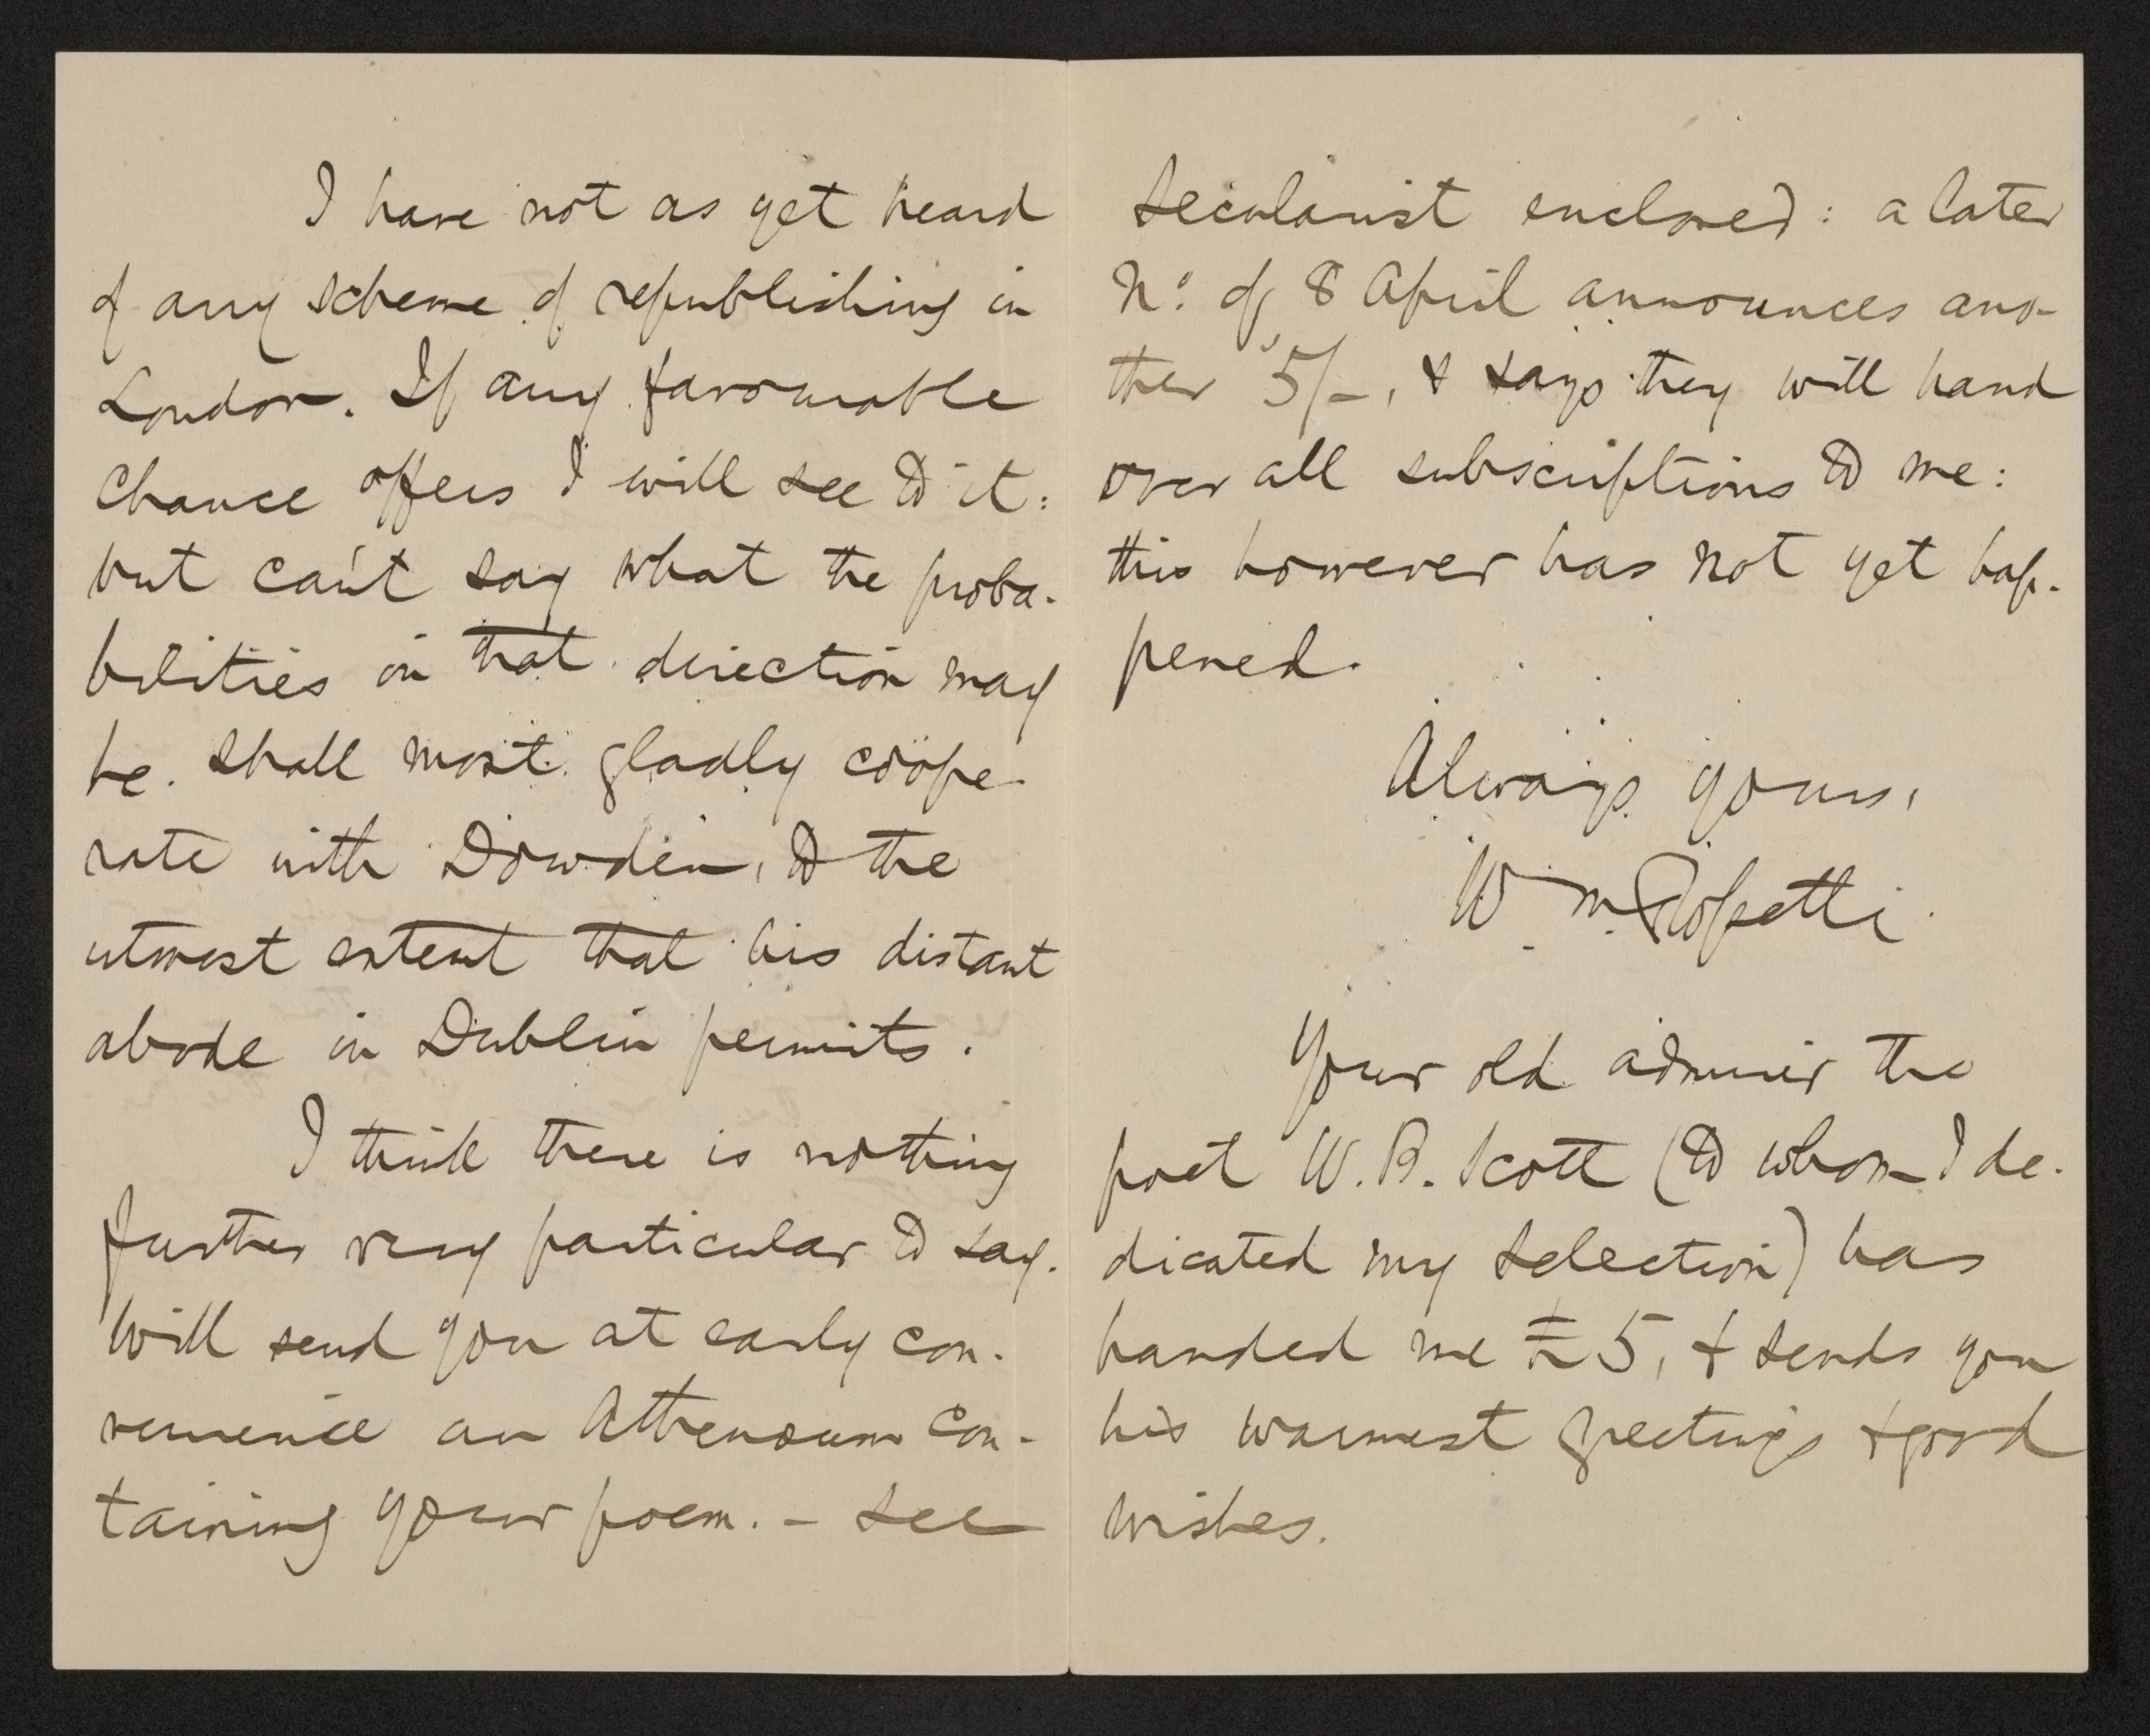 I have not as yet heard
of any scheme of republishing in
London. If any favourable
chance offers I will see to it:
but can't say what the proba-
bilities in that direction may
be. Shall most gladly coöpe-
rate with Dowden, to the
utmost extent that his distant
abode in Dublin permits.
I think there is nothing
further very particular to say.
Will send you at early con-
venience an Athenaeum con-
taining your poem. – See
Secularist enclosed: a later
No. of 8 April announces ano-
ther 5/–, & says they will hand
over all subscriptions to me:
this however has not yet hap-
pened.
Always yours,
W. M. Rossetti.
Your old admirer the
poet W. B. Scott (to whom I de-
dicated my Selection) has
handed me £5, & sends you
his warmest greetings & good
wishes.